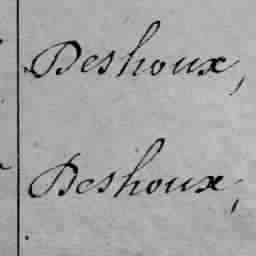 Deshoux,
Deshoux,